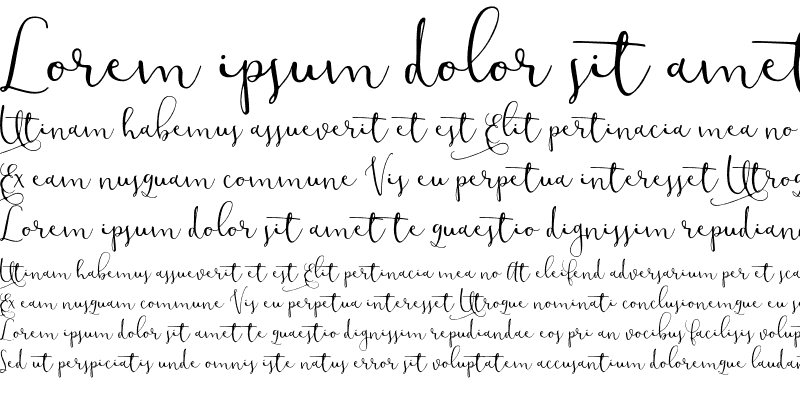 Lorem ipsum dolor sit amet
Utinam habemus assueverit et est Elit pertinacia mea no
Ex eam nusquam commune Vis eu perpetua interesset Utroq
Lorem ipsum dolor sit amet te quaestio dignissim repudian
Utinam habemus assueverit et est Elit pertinacia mea no At eleifend adversarium per et sca
Ex eam nusquam commune Vis eu perpetua interesset Utroque nominati conclusionemque eu s
Lorem ipsum dolor sit amet te quaestio dignissim repudiandae eos pri an vocibus facilisis volup
Sed ut perspiciatis unde omnis iste natus error sit voluptatem accusantium doloremque laudan